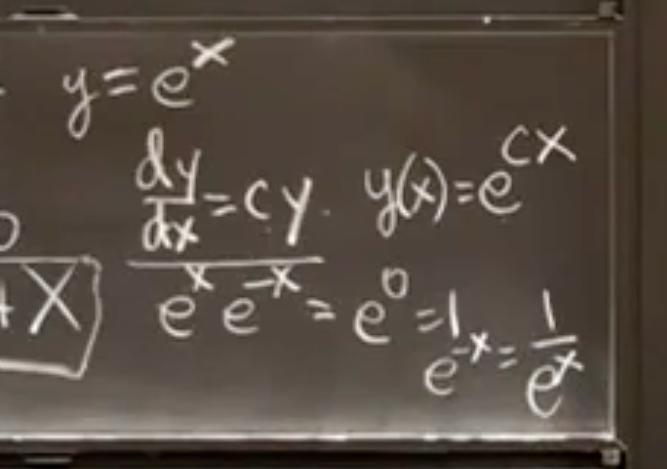 y = e^x
dy/dx = cy. y(x) = e^{cx}
X
e^x e^{-x} = e^0 = 1
e^{-x} = 1/e^x